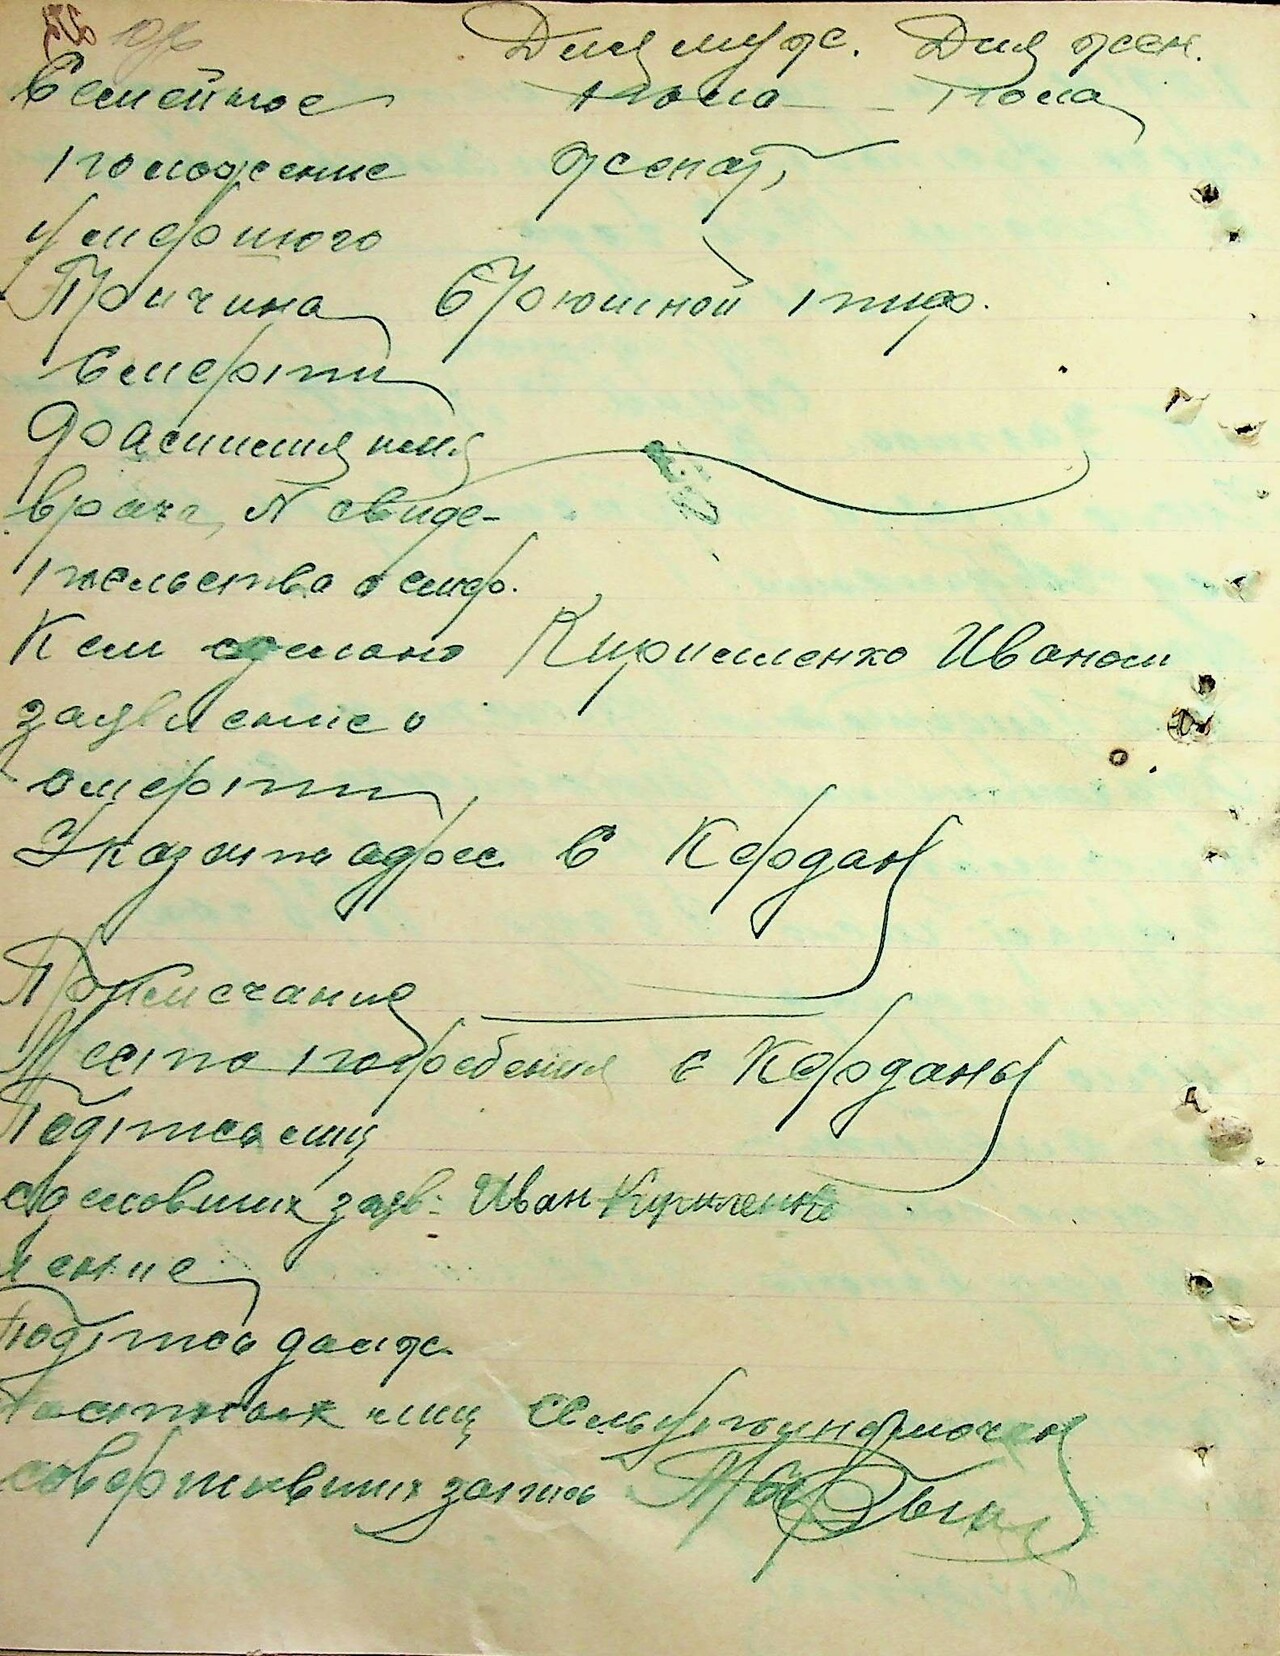 Для муж. Для жен.
Семейное пола пола
положение женат,
умершого
Причина брюшной тиф.
смерти
Фамилия имя
врача, N свиде-
тельства о смер.
Кем сделано Кириленко Иваном
заявление о
смерти
Указать адрес С Кордан
Примечания
Место погребения с Корданы
Подпись лиц
сделавших заяв-
Иван Кириленко
ление
Подпись долж
ностных лиц
совершивших запись